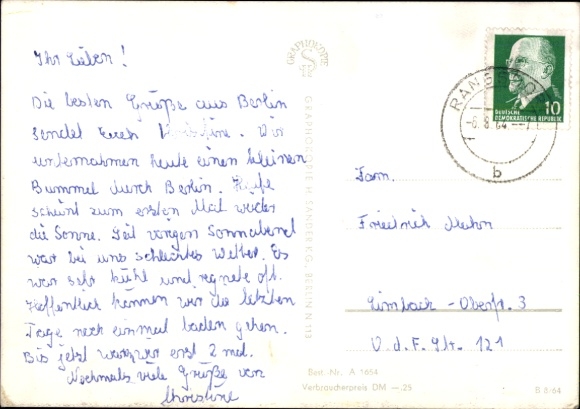 Ihr Lieben!
Die besten Grüße aus Berlin
sendet Euch Christine. Wir
unternahmen heute einen kleinen
Bummel durch Berlin. Heute
scheint zum ersten Mal wieder
die Sonne. Seit vorigen Sonnabend
war bei uns schlechtes Wetter. Es
war sehr kühl und regnete oft.
Hoffentlich können wir die letzten
Tage noch einmal baden gehen.
Bis jetzt waren wir erst 2 mal.
Nochmals viele Grüße von
Christine
GRAPHOKOPIE
GRAPHOKOPIE H. SANDER K.G. BERLIN N 113
RANGSDORF
-6.8.64
b
10
Deutsche
DEMOKRATISCHE REPUBLIK
Fam.
Friedrich
Limbach - Oberfr. 3
V. d. F. Str. 121
Best.-Nr. A 1654
Verbraucherpreis DM -.25
B 6/64